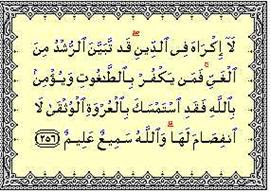 لَآ إِكْرَاهَ فِى ٱلدِّينِ ۖ قَد تَّبَيَّنَ ٱلرُّشْدُ مِنَ
ٱلْغَىِّ ۚ فَمَن يَكْفُرْ بِٱلطَّٰغُوتِ وَيُؤْمِنۢ
بِٱللَّهِ فَقَدِ ٱسْتَمْسَكَ بِٱلْعُرْوَةِ ٱلْوُثْقَىٰ لَا
ٱنفِصَامَ لَهَا ۗ وَٱللَّهُ سَمِيعٌ عَلِيمٌ ﴿٢٥٦﴾